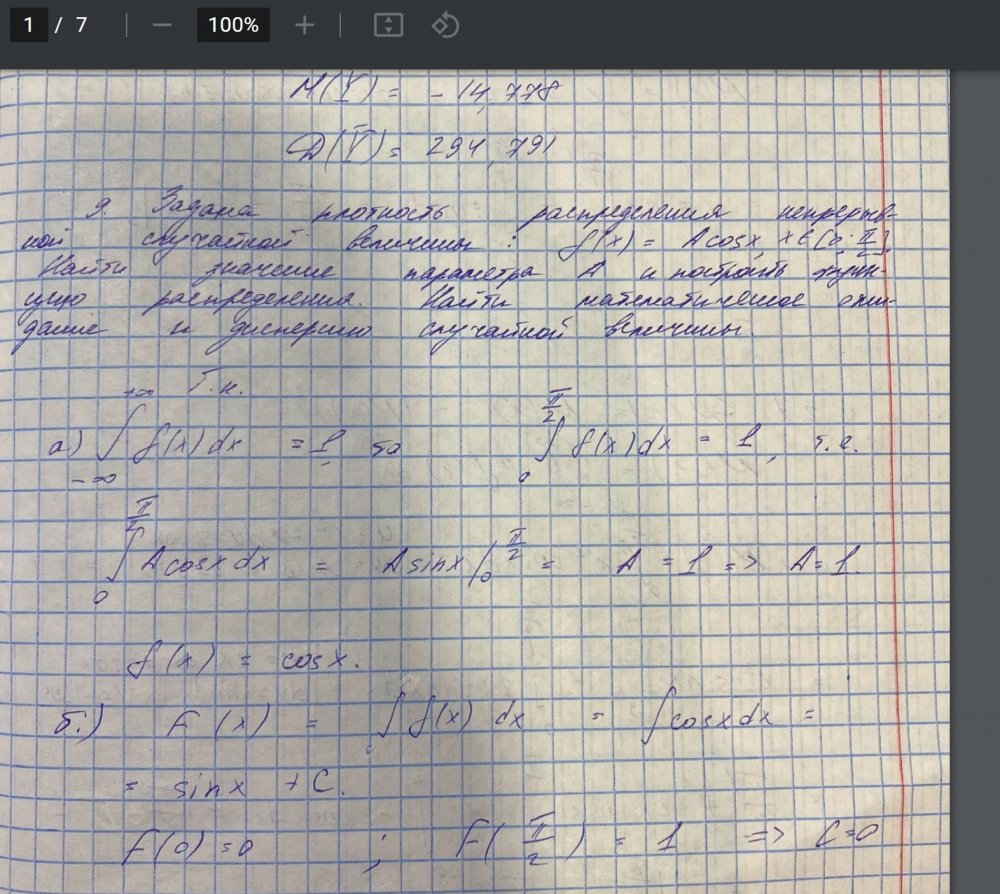 1 / 7 100%
M(Y) = -14,778
D(Y) = 294,791
9. Задана плотность распределения непрерыв-
ной случайной величины: f(x) = A cosx, x∈[0; π/2].
Найти значение параметра A и построить функ-
цию распределения. Найти математическое ожи-
дание и дисперсию случайной величины.
Т.к.
а) ∫_{-∞}^{+∞} f(x)dx = 1, то ∫_0^{π/2} f(x)dx = 1, т.е.
∫_0^{π/2} A cosx dx = A sinx |_0^{π/2} = A = 1 => A = 1.
f(x) = cosx.
б.) F(x) = ∫ f(x) dx = ∫ cosx dx =
= sinx + C.
F(0) = 0 ; F(π/2) = 1 => C = 0